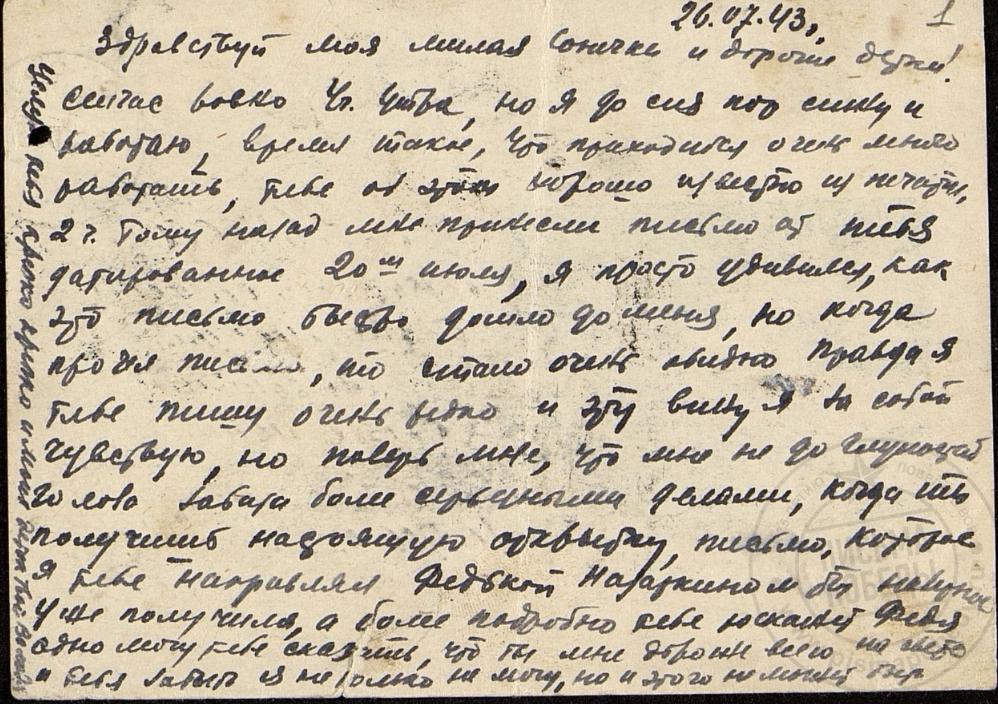 26.07.43г.
1
Здравствуй моя милая Сонечка и дорогие детки!
Сейчас ровно 4ч. утра, но я до сих пор сижу и
работаю, время такое, что приходится очень много
работать, тебе об этом хорошо известно из печати,
2 ч. тому назад мне принесли письмо от тебя
датированное 20ᵐ июля, я просто удивился, как
это письмо быстро дошло до меня, но когда
прочел письмо, то стало очень обидно правда я
тебе пишу очень редко и эту вину я за собой
чувствую, но поверь мне, что мне не до глупостей
голова забита более серьезными делами, когда ты
получишь настоящую открытку, письмо, которое
я тебе направлял Федькой ты наверное
уже получила, а более подробно тебе расскажет Федя
одно могу тебе сказать, что ты мне дороже всего на свете
и тебя забыть я не только не могу, но и этого не может быть
Целую тебя крепко крепко и милых деток твой
ПИСЬМА ПОБЕДЫ